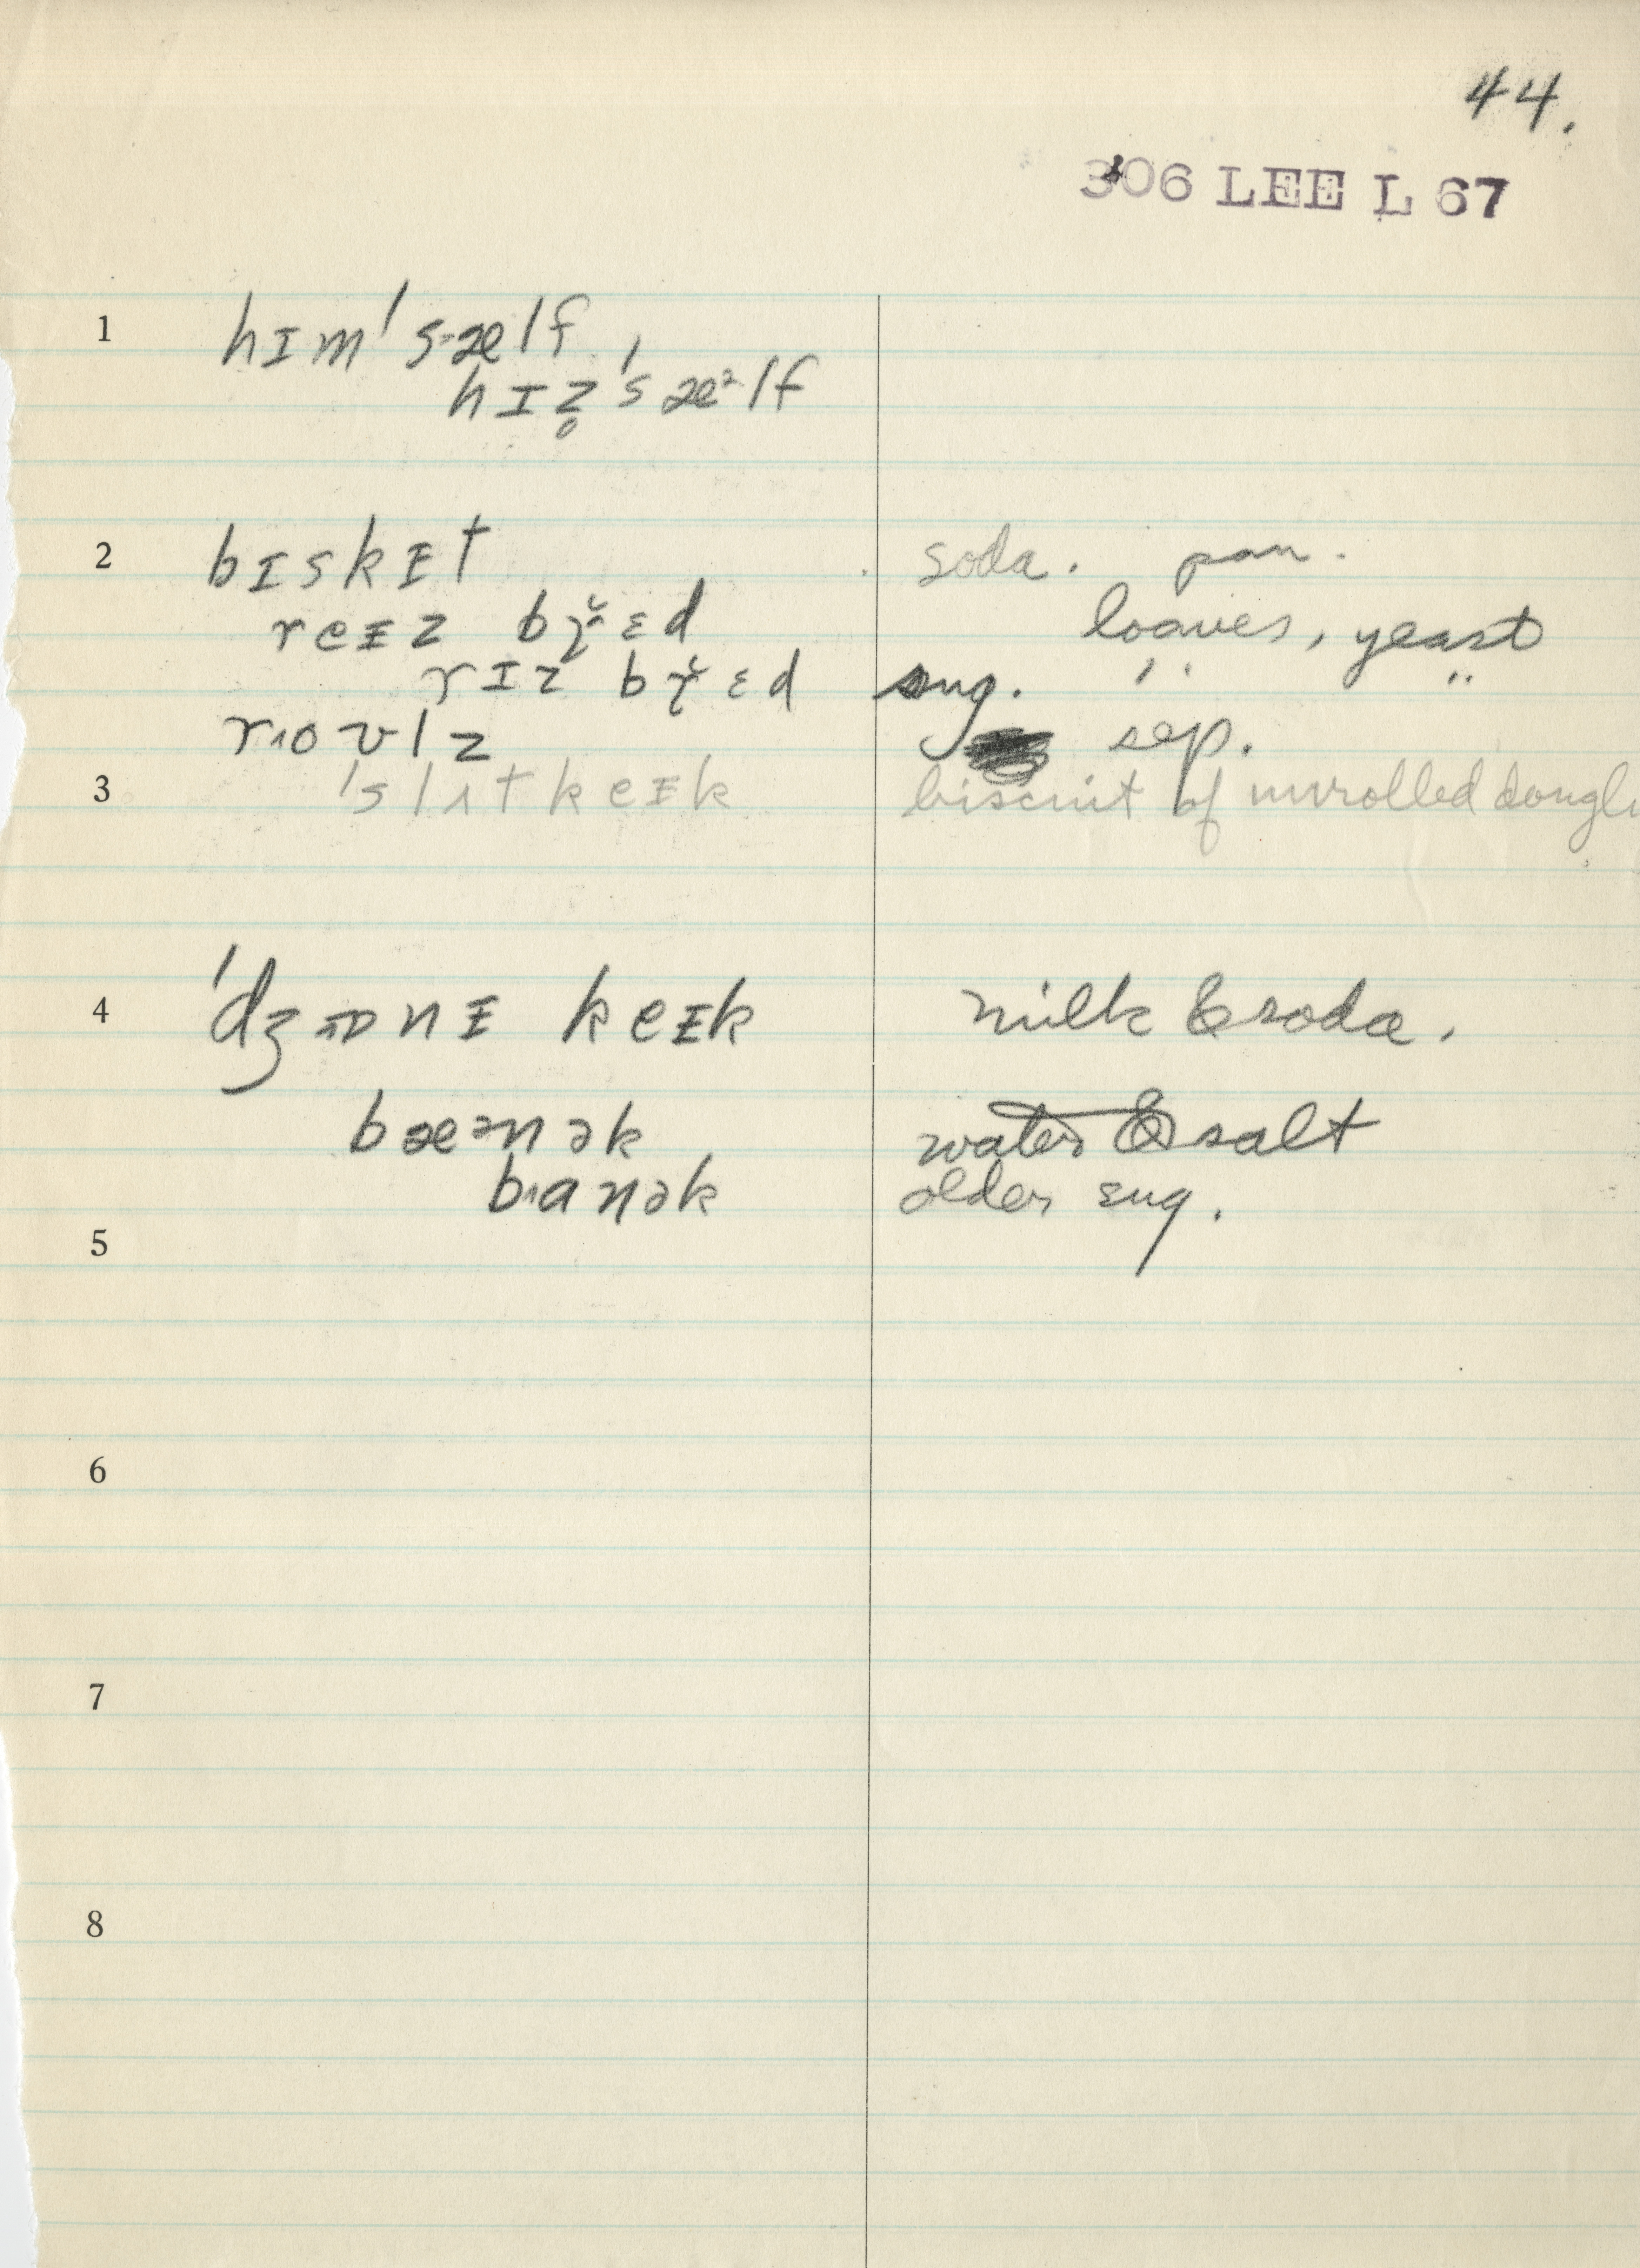 44.
306 LEE L 67
1 hɪm's·ælf,
hɪz̥'sæᵊlf
2 bɪskᵻt soda. pan.
reᵻz br̥̆ɛd loaves, yeast
rɪz br̥̆ɛd sug. " "
rʌoʊlz sep.
3 'slɪtkeᵻk biscuit of unrolled dough
4 'dʒɒnᵻ keᵻk milk & soda.
bæᵊnək water & salt
banək older sug.
5
6
7
8